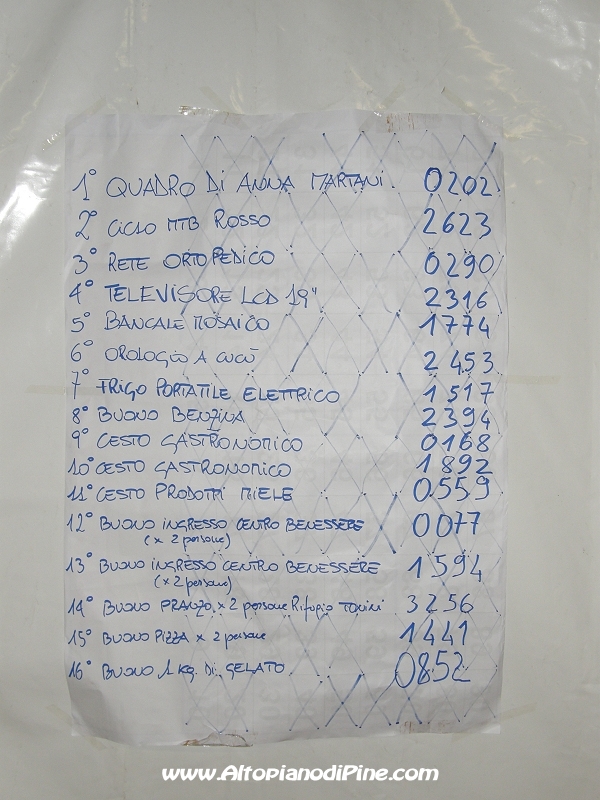 1° QUADRO DI ANNA MARTANI. 0202
2° CICLO MTB ROSSO 2623
3° RETE ORTOPEDICO 0290
4° TELEVISORE LCD 19" 2316
5° BANCALE MOSAICO 1774
6° OROLOGIO A CUCÙ 2453
7° FRIGO PORTATILE ELETTRICO 1517
8° BUONO BENZINA 2394
9° CESTO GASTRONOMICO 0168
10° CESTO GASTRONOMICO 1892
11° CESTO PRODOTTI MIELE 0559
12° BUONO INGRESSO CENTRO BENESSERE 0077
(x 2 persone)
13° BUONO INGRESSO CENTRO BENESSERE 1594
(x 2 persone)
14° BUONO PRANZO x 2 persone Rifugio TONINI 3256
15° BUONO PIZZA x 2 persone 1441
16° BUONO 1 Kg. DI GELATO 0852
www.AltopianodiPine.com